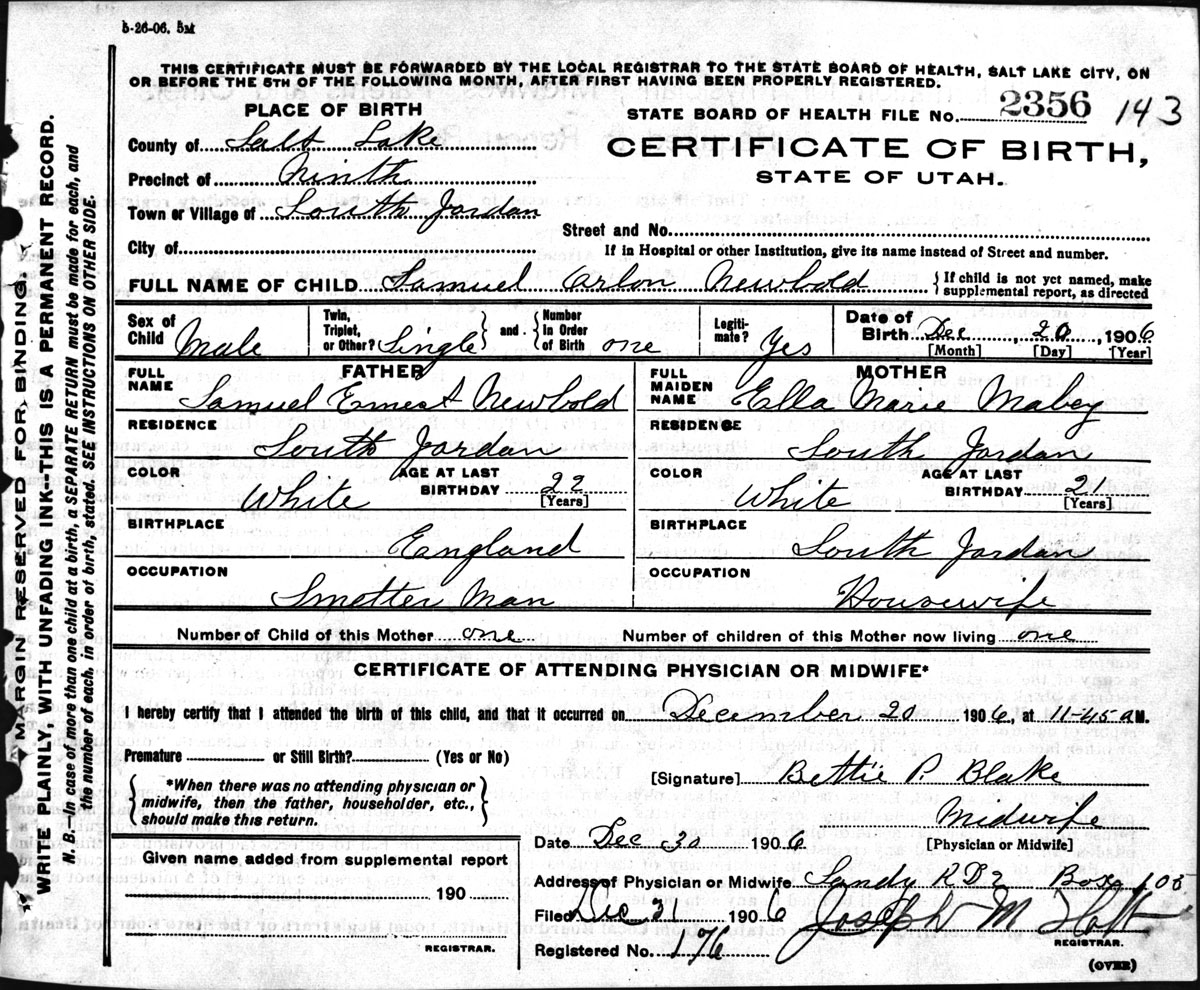 5-26-06. 5M
THIS CERTIFICATE MUST BE FORWARDED BY THE LOCAL REGISTRAR TO THE STATE BOARD OF HEALTH, SALT LAKE CITY, ON
OR BEFORE THE 5TH OF THE FOLLOWING MONTH, AFTER FIRST HAVING BEEN PROPERLY REGISTERED.
PLACE OF BIRTH
STATE BOARD OF HEALTH FILE No. 2356 143
County of Salt Lake
CERTIFICATE OF BIRTH,
STATE OF UTAH.
Precinct of Ninth
Town or Village of South Jordan
Street and No.
City of
If in Hospital or other Institution, give its name instead of Street and number.
FULL NAME OF CHILD Samuel Arlon Newbold { If child is not yet named, make
supplemental report, as directed
Sex of Child Male
Twin, Triplet, or Other? Single } and { Number In Order of Birth one
Legiti- mate? Yes
Date of Birth Dec, 20, 1906
[Month] [Day] [Year]
FATHER
MOTHER
FULL NAME Samuel Ernest Newbold
FULL MAIDEN NAME Ella Marie Mabey
RESIDENCE South Jordan
RESIDENCE South Jordan
COLOR White AGE AT LAST BIRTHDAY 22 [Years]
COLOR White AGE AT LAST BIRTHDAY 21 [Years]
BIRTHPLACE England
BIRTHPLACE South Jordan
OCCUPATION Smelter Man
OCCUPATION Housewife
Number of Child of this Mother one Number of children of this Mother now living one
CERTIFICATE OF ATTENDING PHYSICIAN OR MIDWIFE*
I hereby certify that I attended the birth of this child, and that it occurred on December 20 1906, at 11-45 a M.
Premature or Still Birth? (Yes or No)
[Signature] Bettie P. Blake
{ *When there was no attending physician or
midwife, then the father, householder, etc.,
should make this return. }
Midwife
[Physician or Midwife]
Date Dec 30 1906
Given name added from supplemental report
190
REGISTRAR.
Address of Physician or Midwife Sandy RD2 Box 105
Filed Dec 31 1906 Joseph M Holt
REGISTRAR.
Registered No. 176
(OVER)
MARGIN RESERVED FOR BINDING.
WRITE PLAINLY, WITH UNFADING INK--THIS IS A PERMANENT RECORD.
N. B.—In case of more than one child at a birth, a SEPARATE RETURN must be made for each, and
the number of each, in order of birth, stated. SEE INSTRUCTIONS ON OTHER SIDE.